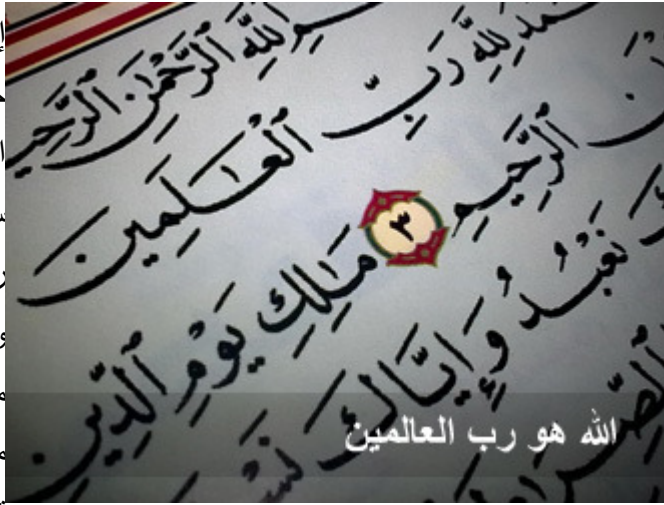 بِسْمِ ٱللَّهِ ٱلرَّحْمَٰنِ ٱلرَّحِيمِ
ٱلْحَمْدُ لِلَّهِ رَبِّ ٱلْعَٰلَمِينَ
ٱلرَّحِيمِ ٣ مَٰلِكِ يَوْمِ ٱلدِّينِ
نَعْبُدُ وَإِيَّاكَ
الله هو رب العالمين